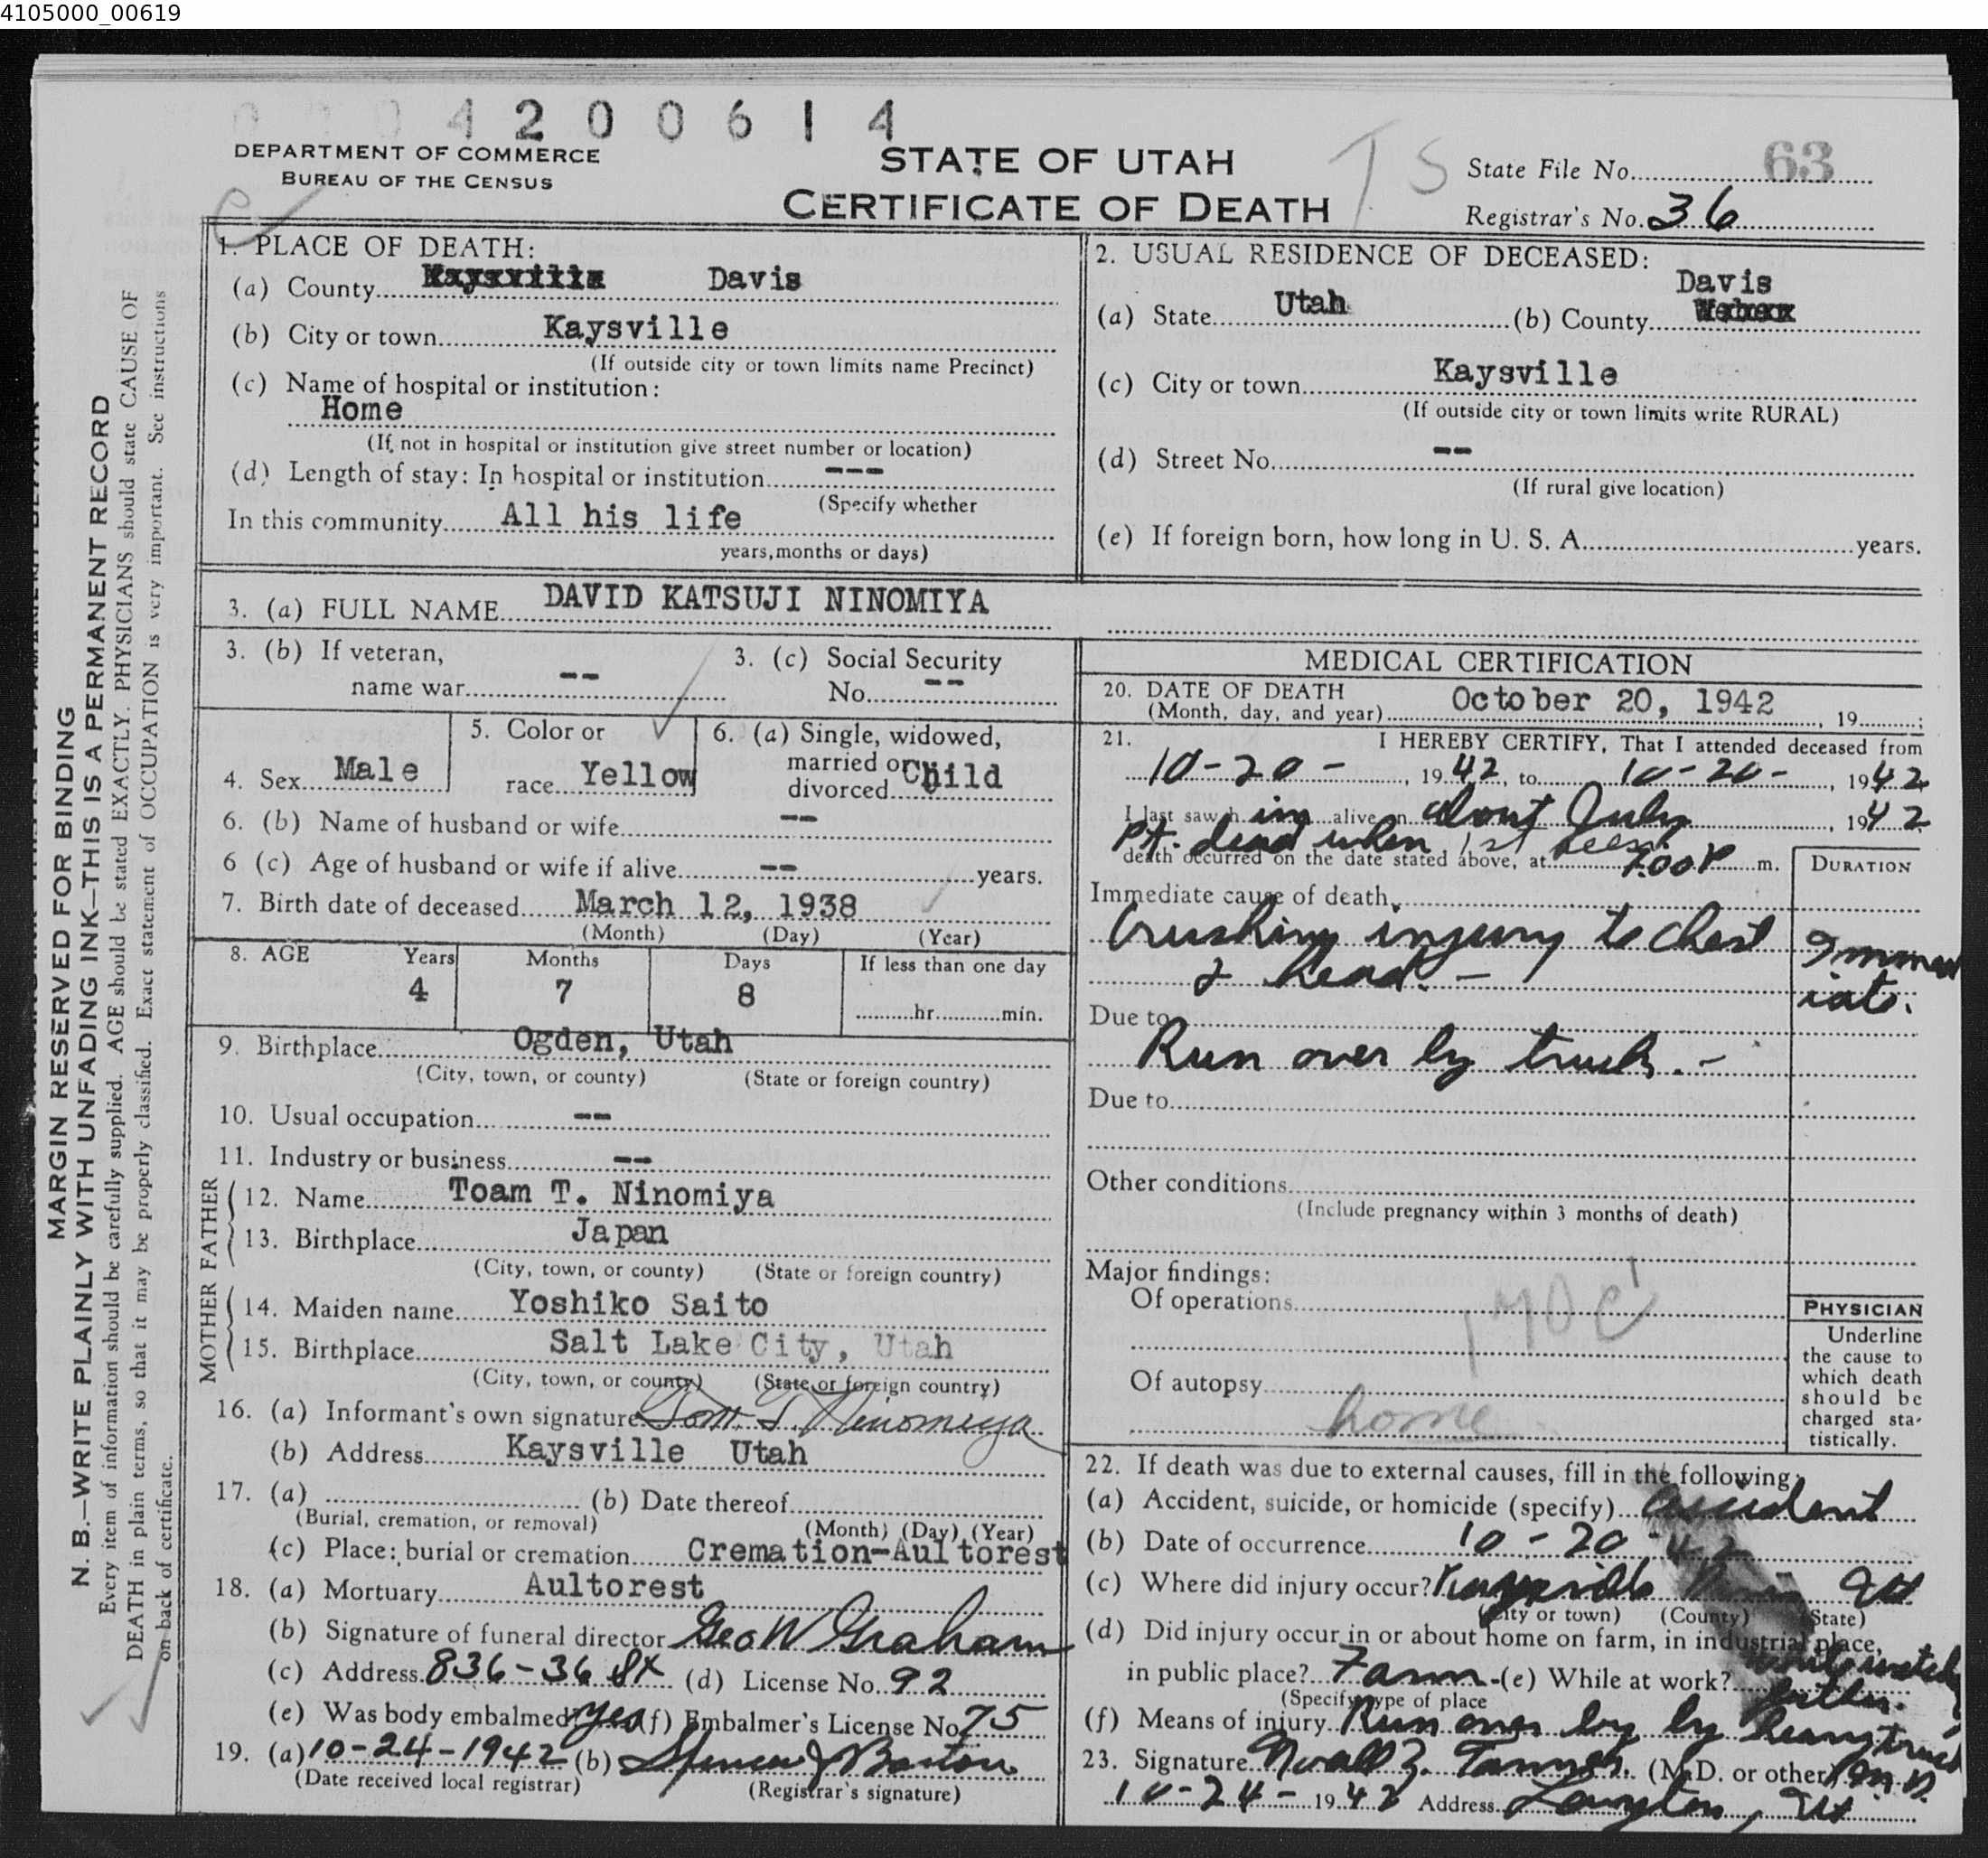 4105000_00619
4 2 0 0 6 1 4
DEPARTMENT OF COMMERCE
BUREAU OF THE CENSUS
STATE OF UTAH
CERTIFICATE OF DEATH
TS
State File No. 63
Registrar's No. 36
MARGIN RESERVED FOR BINDING
N. B.—WRITE PLAINLY WITH UNFADING INK—THIS IS A PERMANENT RECORD
Every item of information should be carefully supplied. AGE should be stated EXACTLY. PHYSICIANS should state CAUSE OF
DEATH in plain terms, so that it may be properly classified. Exact statement of OCCUPATION is very important. See instructions
on back of certificate.
1. PLACE OF DEATH:
(a) County Davis
(b) City or town Kaysville
(If outside city or town limits name Precinct)
(c) Name of hospital or institution:
Home
(If not in hospital or institution give street number or location)
(d) Length of stay: In hospital or institution ---
(Specify whether
In this community All his life
years, months or days)
2. USUAL RESIDENCE OF DECEASED:
Davis
(a) State Utah (b) County
(c) City or town Kaysville
(If outside city or town limits write RURAL)
(d) Street No. --
(If rural give location)
(e) If foreign born, how long in U. S. A. years.
3. (a) FULL NAME DAVID KATSUJI NINOMIYA
3. (b) If veteran,
name war --
3. (c) Social Security
No. --
4. Sex Male
5. Color or
race Yellow
6. (a) Single, widowed,
married or
divorced Child
6. (b) Name of husband or wife --
6 (c) Age of husband or wife if alive -- years.
7. Birth date of deceased March 12, 1938
(Month) (Day) (Year)
8. AGE Years Months Days If less than one day
4 7 8 hr. min.
9. Birthplace Ogden, Utah
(City, town, or county) (State or foreign country)
10. Usual occupation --
11. Industry or business --
FATHER
12. Name Toam T. Ninomiya
13. Birthplace Japan
(City, town, or county) (State or foreign country)
MOTHER
14. Maiden name Yoshiko Saito
15. Birthplace Salt Lake City, Utah
(City, town, or county) (State or foreign country)
16. (a) Informant's own signature Tom T. Ninomiya
(b) Address Kaysville Utah
17. (a) (b) Date thereof
(Burial, cremation, or removal) (Month) (Day) (Year)
(c) Place: burial or cremation Cremation-Aultorest
18. (a) Mortuary Aultorest
(b) Signature of funeral director Geo W Graham
(c) Address 836-36 St (d) License No. 92
(e) Was body embalmed Yes (f) Embalmer's License No. 75
19. (a) 10-24-1942 (b) Spencer J Barton
(Date received local registrar) (Registrar's signature)
MEDICAL CERTIFICATION
20. DATE OF DEATH
(Month, day, and year) October 20, 1942, 19 ;
21. I HEREBY CERTIFY, That I attended deceased from
10-20-, 1942, to 10-20-, 1942
I last saw him alive on about July, 1942
Pt. dead when 1st seen
death occurred on the date stated above, at 7:00 P m.
DURATION
Immediate cause of death
Crushing injury to chest
& head. -
Immed
iate.
Due to
Run over by truck. -
Due to
Other conditions
(Include pregnancy within 3 months of death)
Major findings:
Of operations
170c
Of autopsy
home
PHYSICIAN
Underline
the cause to
which death
should be
charged sta-
tistically.
22. If death was due to external causes, fill in the following:
(a) Accident, suicide, or homicide (specify) accident
(b) Date of occurrence 10-20-42
(c) Where did injury occur? Kaysville Davis Ut
(City or town) (County) (State)
(d) Did injury occur in or about home on farm, in industrial place,
in public place? Farm (e) While at work?
father.
(Specify type of place
(f) Means of injury Run over by by heavy truck
23. Signature Noall Z. Tanner. (M.D. or other) M.D.
10-24-1942 Address Layton, Ut